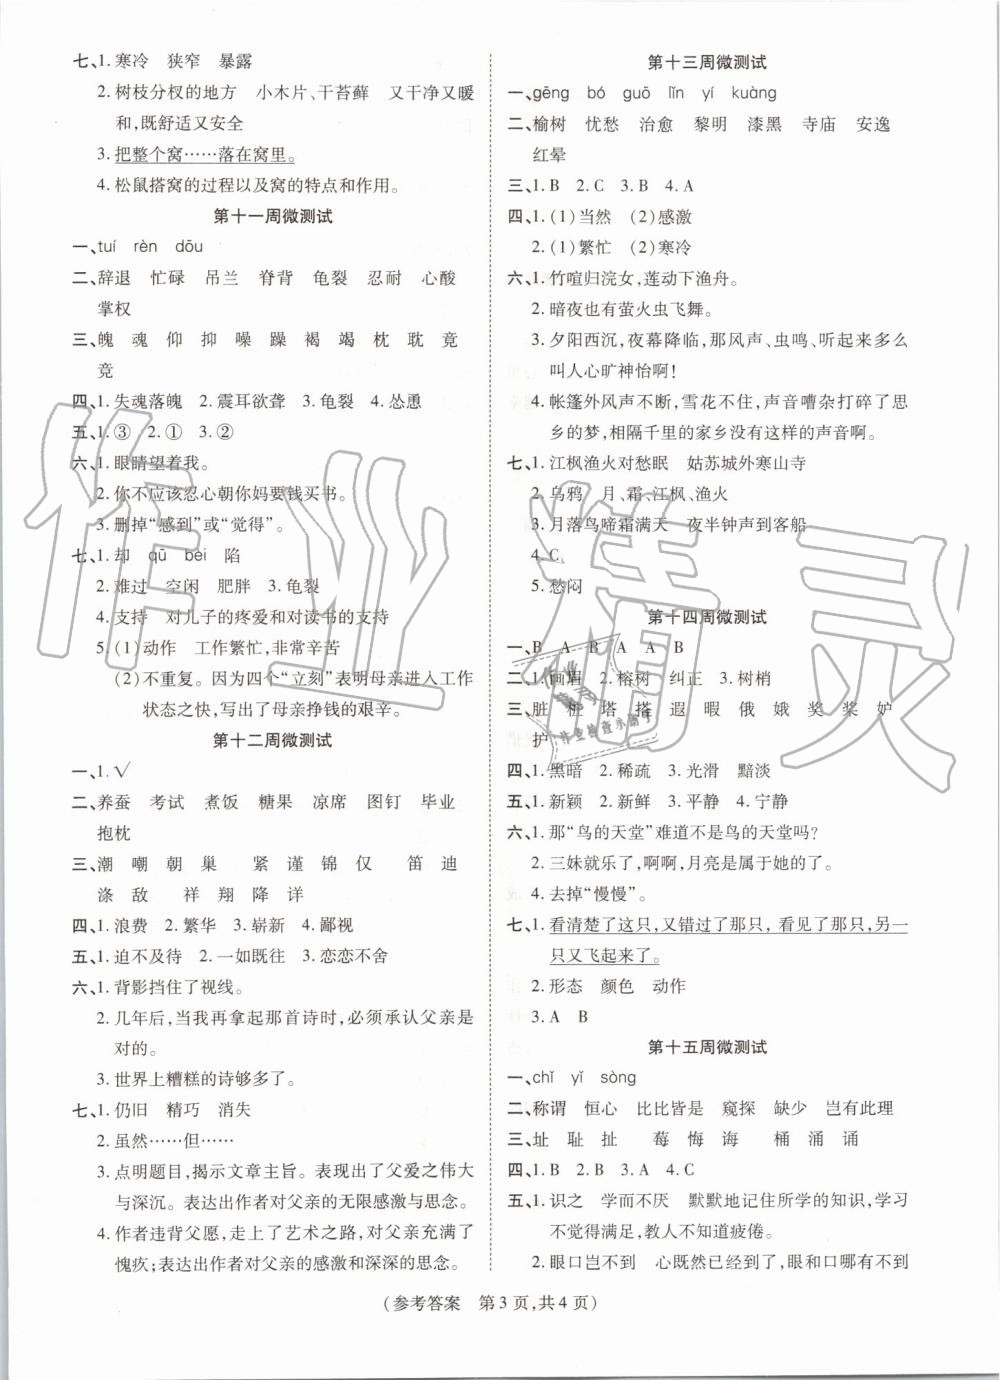 七、1. 寒冷　狭窄　暴露
2. 树枝分杈的地方　小木片、干苔藓　又干净又暖
和,既舒适又安全
3. 把整个窝……落在窝里。
4. 松鼠搭窝的过程以及窝的特点和作用。
第十一周微测试
一、tuí　rèn　dōu
二、辞退　忙碌　吊兰　脊背　龟裂　忍耐　心酸
掌权
三、魄　魂　仰　抑　噪　躁　褐　竭　枕　耽　竟
竞
四、1. 失魂落魄　2. 震耳欲聋　3. 龟裂　4. 怂恿
五、1. ③　2. ①　3. ②
六、1. 眼睛望着我。
2. 你不应该忍心朝你妈要钱买书。
3. 删掉“感到”或“觉得”。
七、1. 却　qū　bèi　陷
2. 难过　空闲　肥胖　3. 龟裂
4. 支持　对儿子的疼爱和对读书的支持
5. (1)动作　工作繁忙,非常辛苦
(2)不重复。因为四个“立刻”表明母亲进入工作
状态之快,写出了母亲挣钱的艰辛。
第十二周微测试
一、1. √
二、养蚕　考试　煮饭　糖果　凉席　图钉　毕业
抱枕
三、潮　嘲　朝　巢　紧　谨　锦　仅　笛　迪
涤　敌　祥　翔　降　详
四、1. 浪费　2. 繁华　3. 崭新　4. 鄙视
五、1. 迫不及待　2. 一如既往　3. 恋恋不舍
六、1. 背影挡住了视线。
2. 几年后,当我再拿起那首诗时,必须承认父亲是
对的。
3. 世界上糟糕的诗够多了。
七、1. 仍旧　精巧　消失
2. 虽然……但……
3. 点明题目,揭示文章主旨。表现出了父爱之伟大
与深沉。表达出作者对父亲的无限感激与思念。
4. 作者违背父愿,走上了艺术之路,对父亲充满了
愧疚;表达出作者对父亲的感激和深深的思念。
第十三周微测试
一、gēng　bó　guō　lǐn　yí　kuàng
二、榆树　忧愁　治愈　黎明　漆黑　寺庙　安逸
红晕
三、1. B　2. C　3. B　4. A
四、1. (1)当然　(2)感激
2. (1)繁忙　(2)寒冷
六、1. 竹喧归浣女,莲动下渔舟。
2. 暗夜也有萤火虫飞舞。
3. 夕阳西沉,夜幕降临,那风声、虫鸣、听起来多么
叫人心旷神怡啊!
4. 帐篷外风声不断,雪花不住,声音嘈杂打碎了思
乡的梦,相隔千里的家乡没有这样的声音啊。
七、1. 江枫渔火对愁眠　姑苏城外寒山寺
2. 乌鸦　月、霜、江枫、渔火
3. 月落乌啼霜满天　夜半钟声到客船
4. C
5. 愁闷
第十四周微测试
一、B　A　B　A　A　B
二、1. 画眉　2. 榕树　纠正　3. 树梢
三、脏　桩　塔　搭　遐　暇　俄　娥　奖　桨　妒
护
四、1. 黑暗　2. 稀疏　3. 光滑　黯淡
五、1. 新颖　2. 新鲜　3. 平静　4. 宁静
六、1. 那“鸟的天堂”难道不是鸟的天堂吗?
2. 三妹就乐了,啊啊,月亮是属于她的了。
4. 去掉“慢慢”。
七、1. 看清楚了这只,又错过了那只,看见了那只,另一
只又飞起来了。
2. 形态　颜色　动作
3. A　B
第十五周微测试
一、chǐ　yǐ　sòng
二、称谓　恒心　比比皆是　窥探　缺少　岂有此理
三、址　耻　扯　莓　悔　诲　桶　涌　诵
四、1. B　2. A　3. B　4. C
五、1. 识之　学而不厌　默默地记住所学的知识,学习
不觉得满足,教人不知道疲倦。
2. 眼口岂不到　心既然已经到了,眼和口哪有不到
(参考答案　第 3 页,共 4 页)
作业精灵